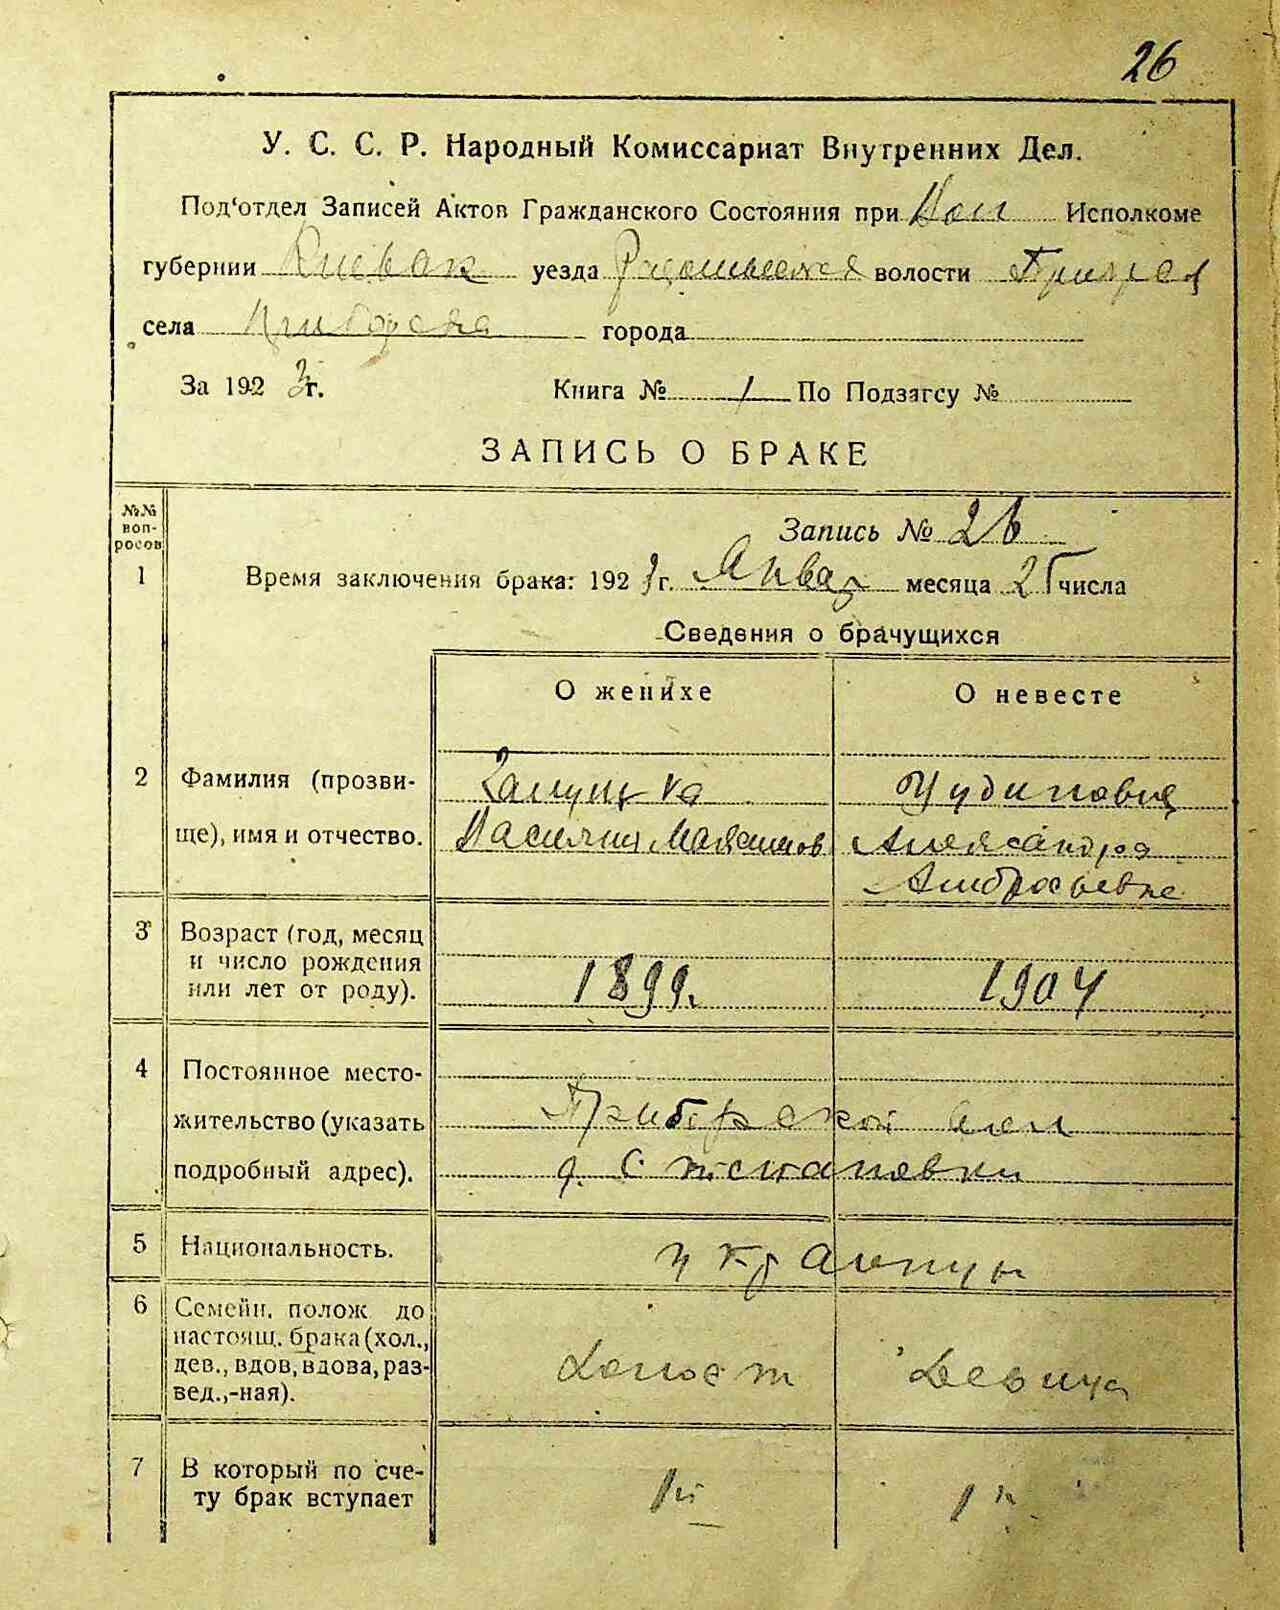 26
У. С. С. Р. Народный Комиссариат Внутренних Дел.
Под‘отдел Записей Актов Гражданского Состояния при Вол Исполкоме
губернии Киевск уезда волости
села города
За 1923г. Книга № 1 По Подзагсу №
ЗАПИСЬ О БРАКЕ
№№ воп-росов
Запись № 26
1 Время заключения брака: 1923г. Январ месяца 25 числа
Сведения о брачущихся
О женихе О невесте
2 Фамилия (прозви- Чудиновиц
ще), имя и отчество. Василий Максимов Александра
Амбросьевне
3 Возраст (год, месяц
и число рождения 1899. 1904
или лет от роду).
4 Постоянное место-
жительство (указать Приборской вол
подробный адрес). д. Степановки
5 Национальность. украинцы
6 Семейн. полож до
настоящ. брака (хол.,
дев., вдов, вдова, раз- Холост Девица
вед.,-ная).
7 В который по сче- 1й 1й
ту брак вступает